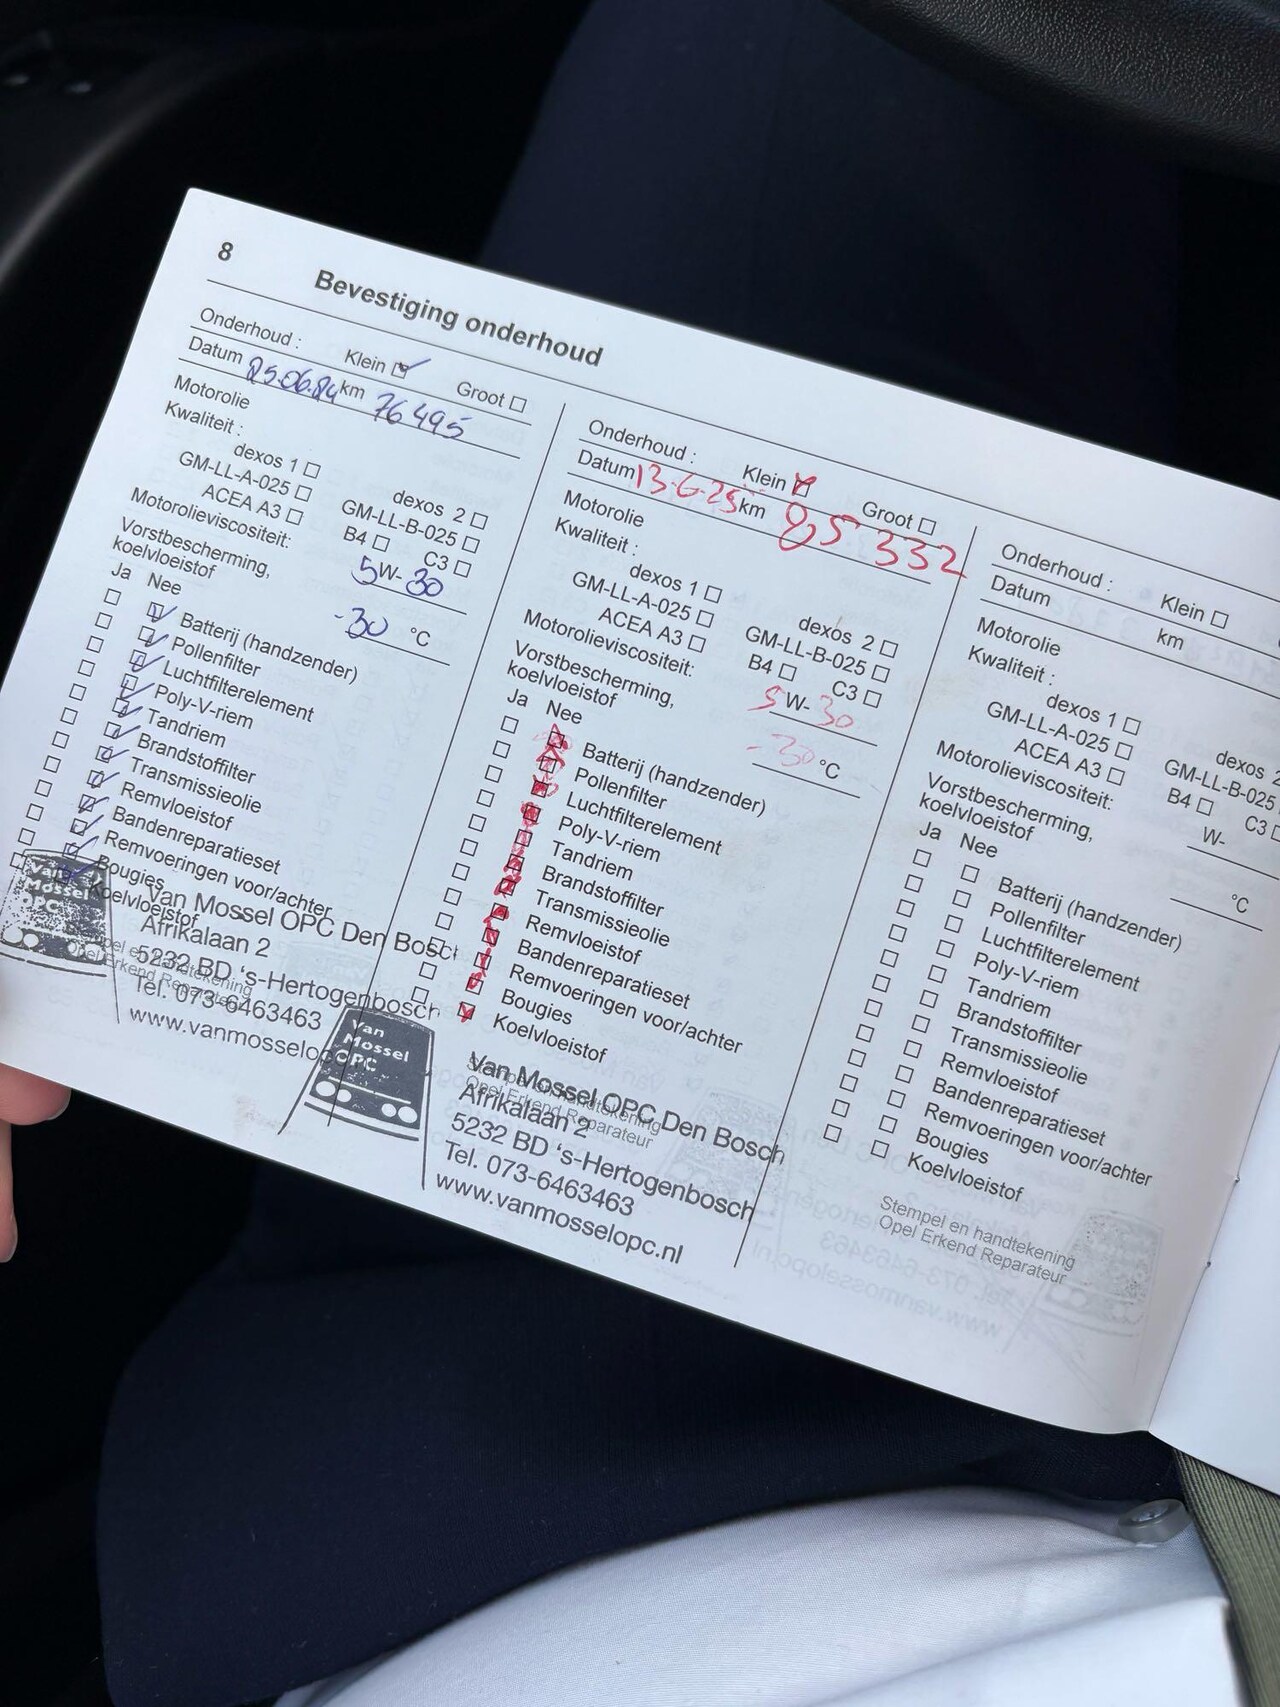 8
Bevestiging onderhoud
Onderhoud : Klein Groot
Datum 25.06.24 km 76495
Motorolie
Kwaliteit :
dexos 1 dexos 2
GM-LL-A-025 GM-LL-B-025
ACEA A3 B4 C3
Motorolieviscositeit: 5W-30
Vorstbescherming,
koelvloeistof -30 °C
Ja Nee
Batterij (handzender)
Pollenfilter
Luchtfilterelement
Poly-V-riem
Tandriem
Brandstoffilter
Transmissieolie
Remvloeistof
Bandenreparatieset
Remvoeringen voor/achter
Bougies
Koelvloeistof
Stempel en handtekening
Opel Erkend Reparateur
Van
Mossel
OPC
Van Mossel OPC Den Bosch
Afrikalaan 2
5232 BD 's-Hertogenbosch
Tel. 073-6463463
www.vanmosselopc
Onderhoud : Klein Groot
Datum 13-6-25 km 85 332
Motorolie
Kwaliteit :
dexos 1 dexos 2
GM-LL-A-025 GM-LL-B-025
ACEA A3 B4 C3
Motorolieviscositeit: 5W-30
Vorstbescherming,
koelvloeistof -30 °C
Ja Nee
Batterij (handzender)
Pollenfilter
Luchtfilterelement
Poly-V-riem
Tandriem
Brandstoffilter
Transmissieolie
Remvloeistof
Bandenreparatieset
Remvoeringen voor/achter
Bougies
Koelvloeistof
Stempel en handtekening
Opel Erkend Reparateur
Van
Mossel
OPC
Van Mossel OPC Den Bosch
Afrikalaan 2
5232 BD 's-Hertogenbosch
Tel. 073-6463463
www.vanmosselopc.nl
Onderhoud : Klein
Datum km
Motorolie
Kwaliteit :
dexos 1 dexos 2
GM-LL-A-025 GM-LL-B-025
ACEA A3 B4 C3
Motorolieviscositeit: W-
Vorstbescherming,
koelvloeistof °C
Ja Nee
Batterij (handzender)
Pollenfilter
Luchtfilterelement
Poly-V-riem
Tandriem
Brandstoffilter
Transmissieolie
Remvloeistof
Bandenreparatieset
Remvoeringen voor/achter
Bougies
Koelvloeistof
Stempel en handtekening
Opel Erkend Reparateur